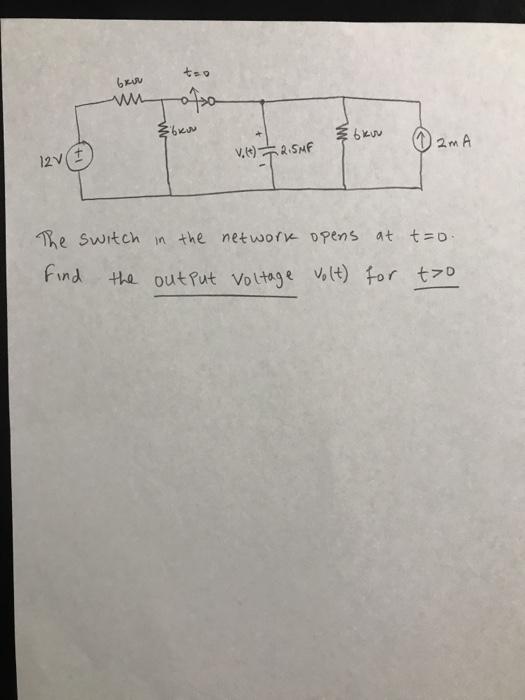 t=0
6kω
6kω
12V
V.(t)
2.5MF
6kω
2mA
The switch in the network opens at t=0.
Find the output voltage Vo(t) for t>0